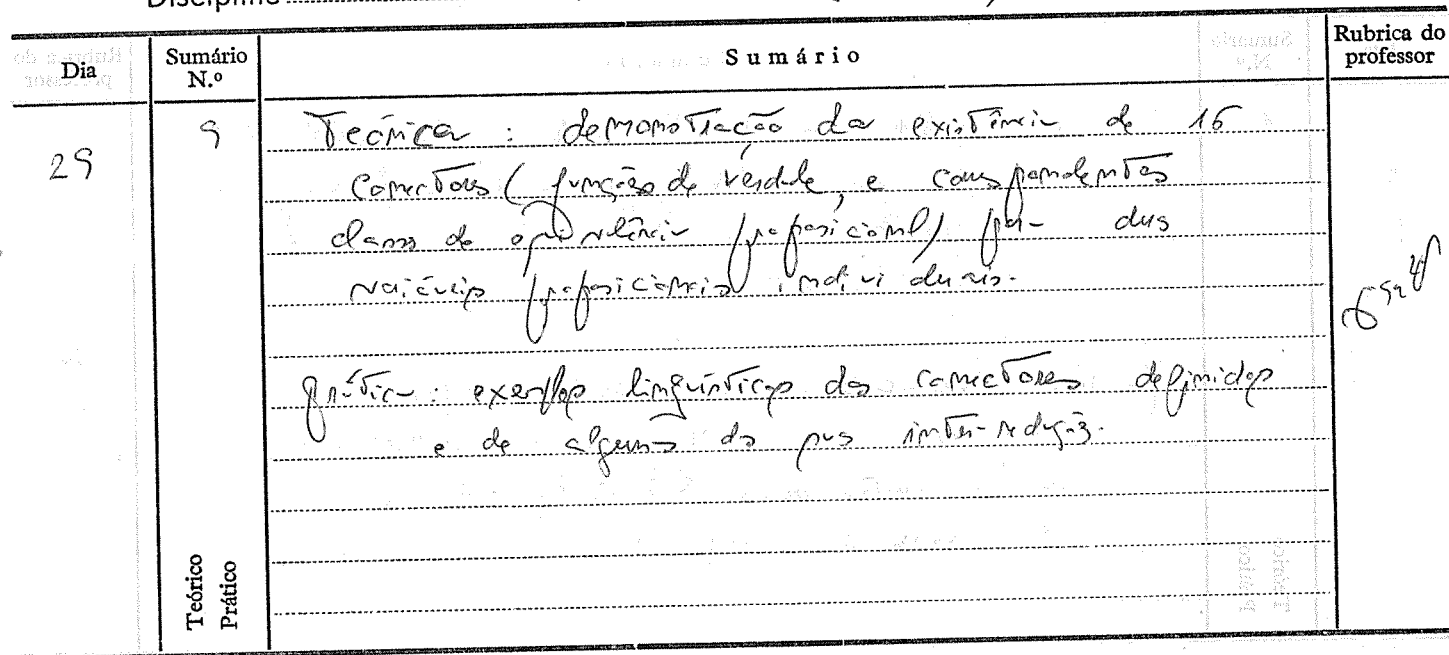 Discipline
Dia
Sumário N.º
Sumário
Rubrica do professor
29
9
Teórica : demonstração da existência de 16
conectores (funções de verdade, e correspondentes
classes de equivalência proposicional) para duas
variáveis proposicionais individuais.
Prática : exemplos linguísticos dos conectores definidos
e de algumas das suas inter-reduções.
Teórico
Prático